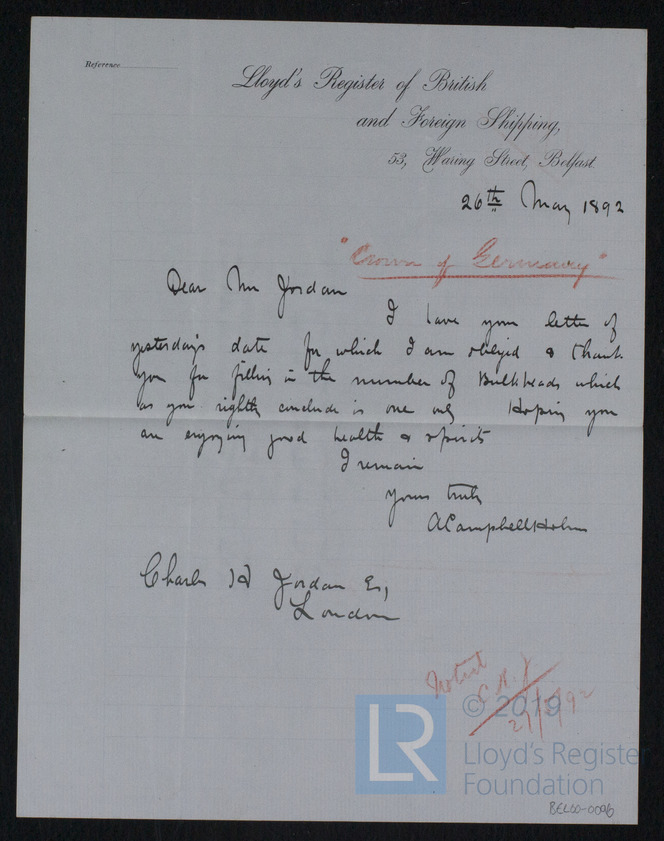 Reference
Lloyd's Register of British
and Foreign Shipping,
53, Waring Street, Belfast.
26th May 1892
"Crown of Germany"
Dear Mr Jordan
I have your letter of
yesterday's date for which I am obliged & thank
you for filling in the number of Bulkheads which
as you rightly conclude is one only Hoping you
are enjoying good health & spirits
I remain
yours truly
A Campbell Holms
Charles H Jordan Esq,
London
Noted
C.H.J
27/5/92
© 2019
LR
Lloyd's Register
Foundation
BEL50-0096